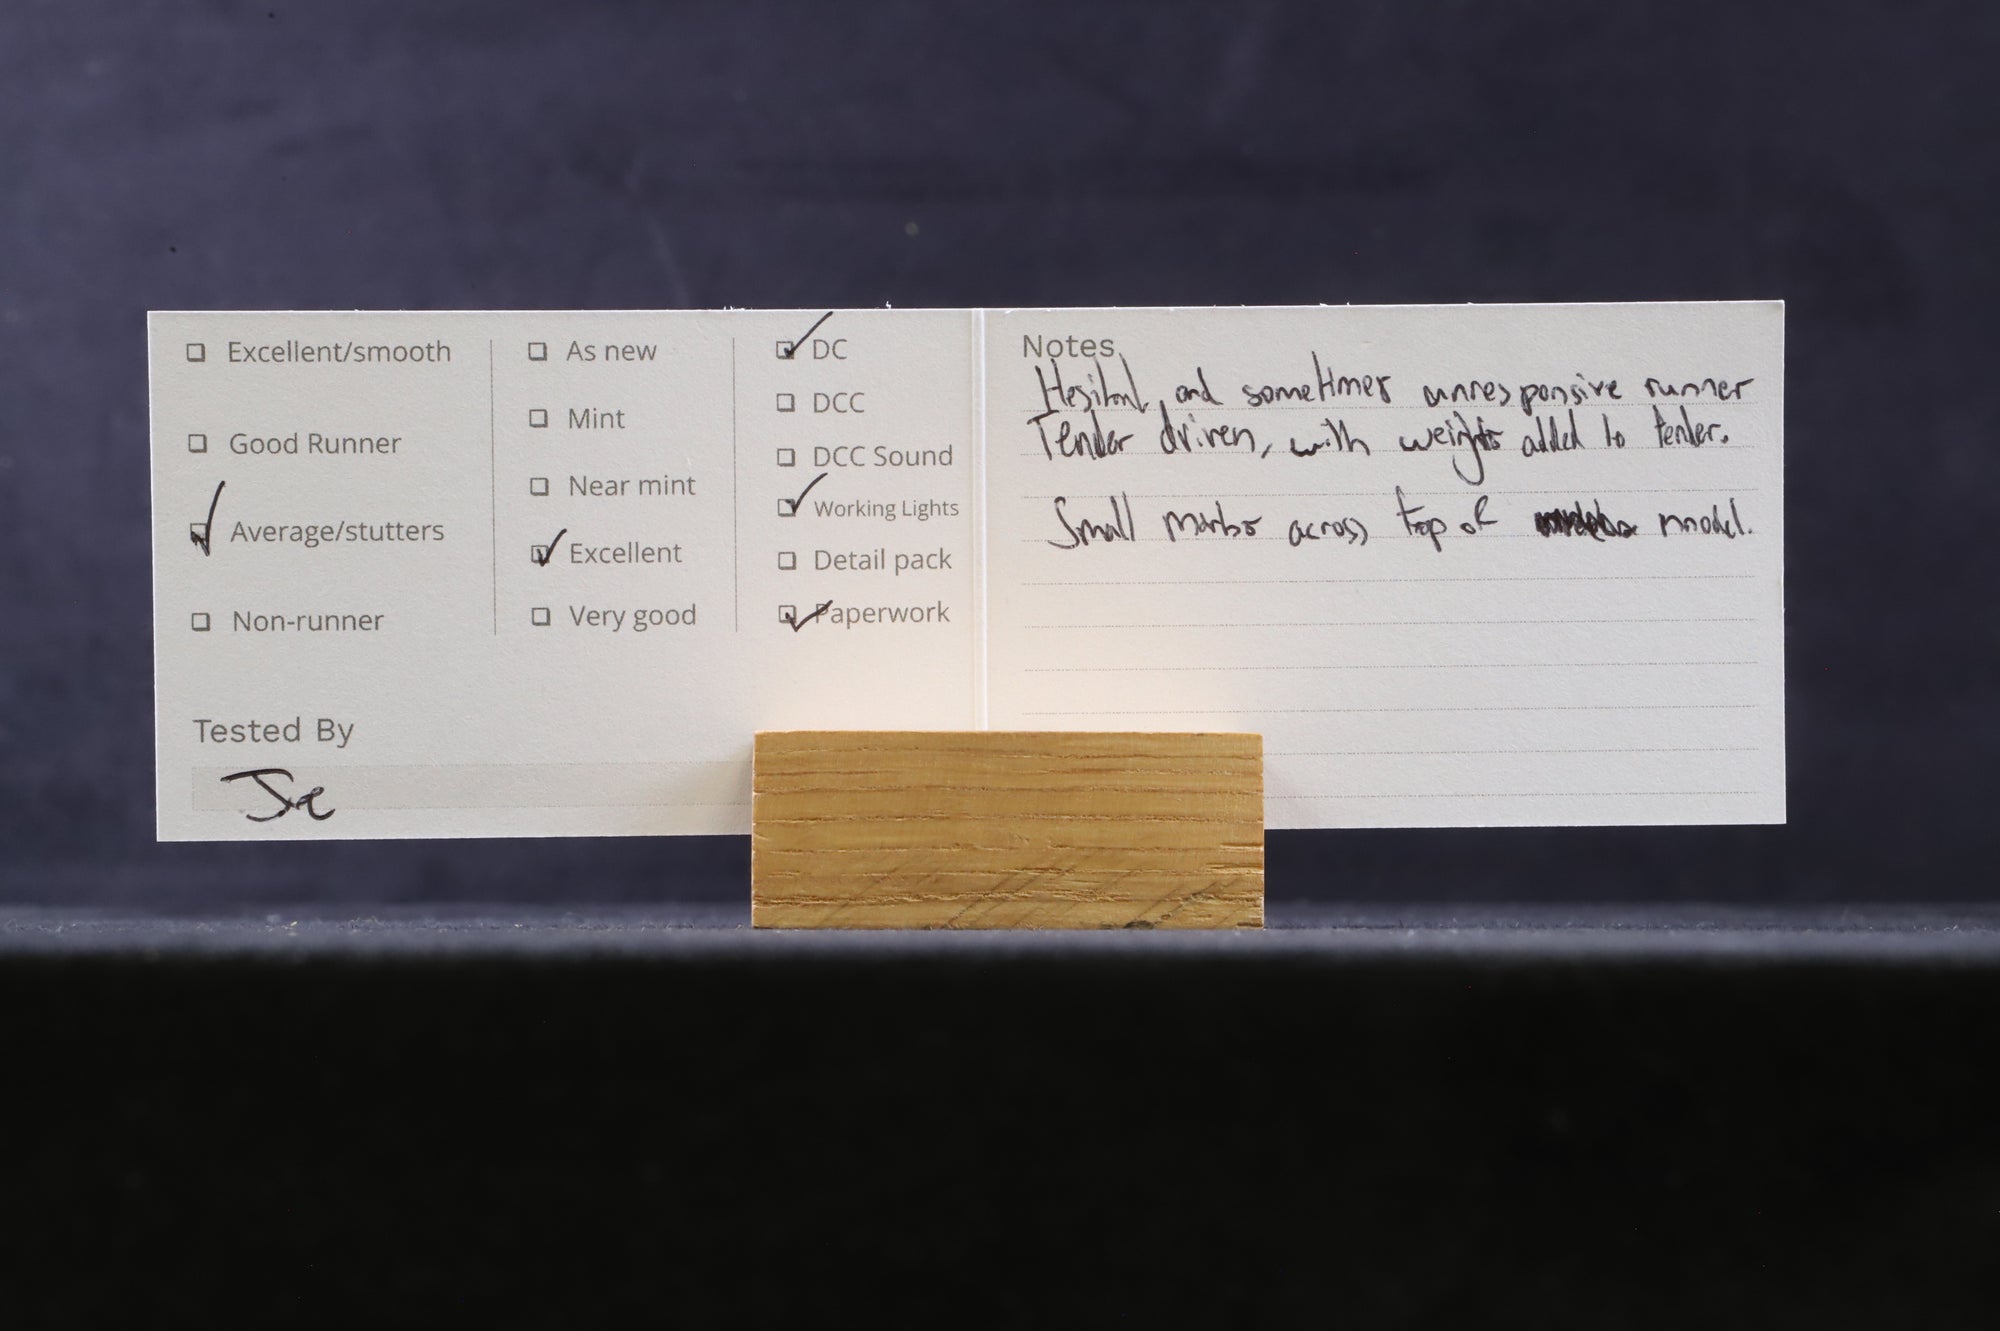 ☐ Excellent/smooth
☐ Good Runner
☑ Average/stutters
☐ Non-runner
☐ As new
☐ Mint
☐ Near mint
☑ Excellent
☐ Very good
☑ DC
☐ DCC
☐ DCC Sound
☑ Working Lights
☐ Detail pack
☑ Paperwork
Tested By
Joe
Notes
Hesitant, and sometimes unresponsive runner
Tender driven, with weights added to tender.
Small marks across top of model.